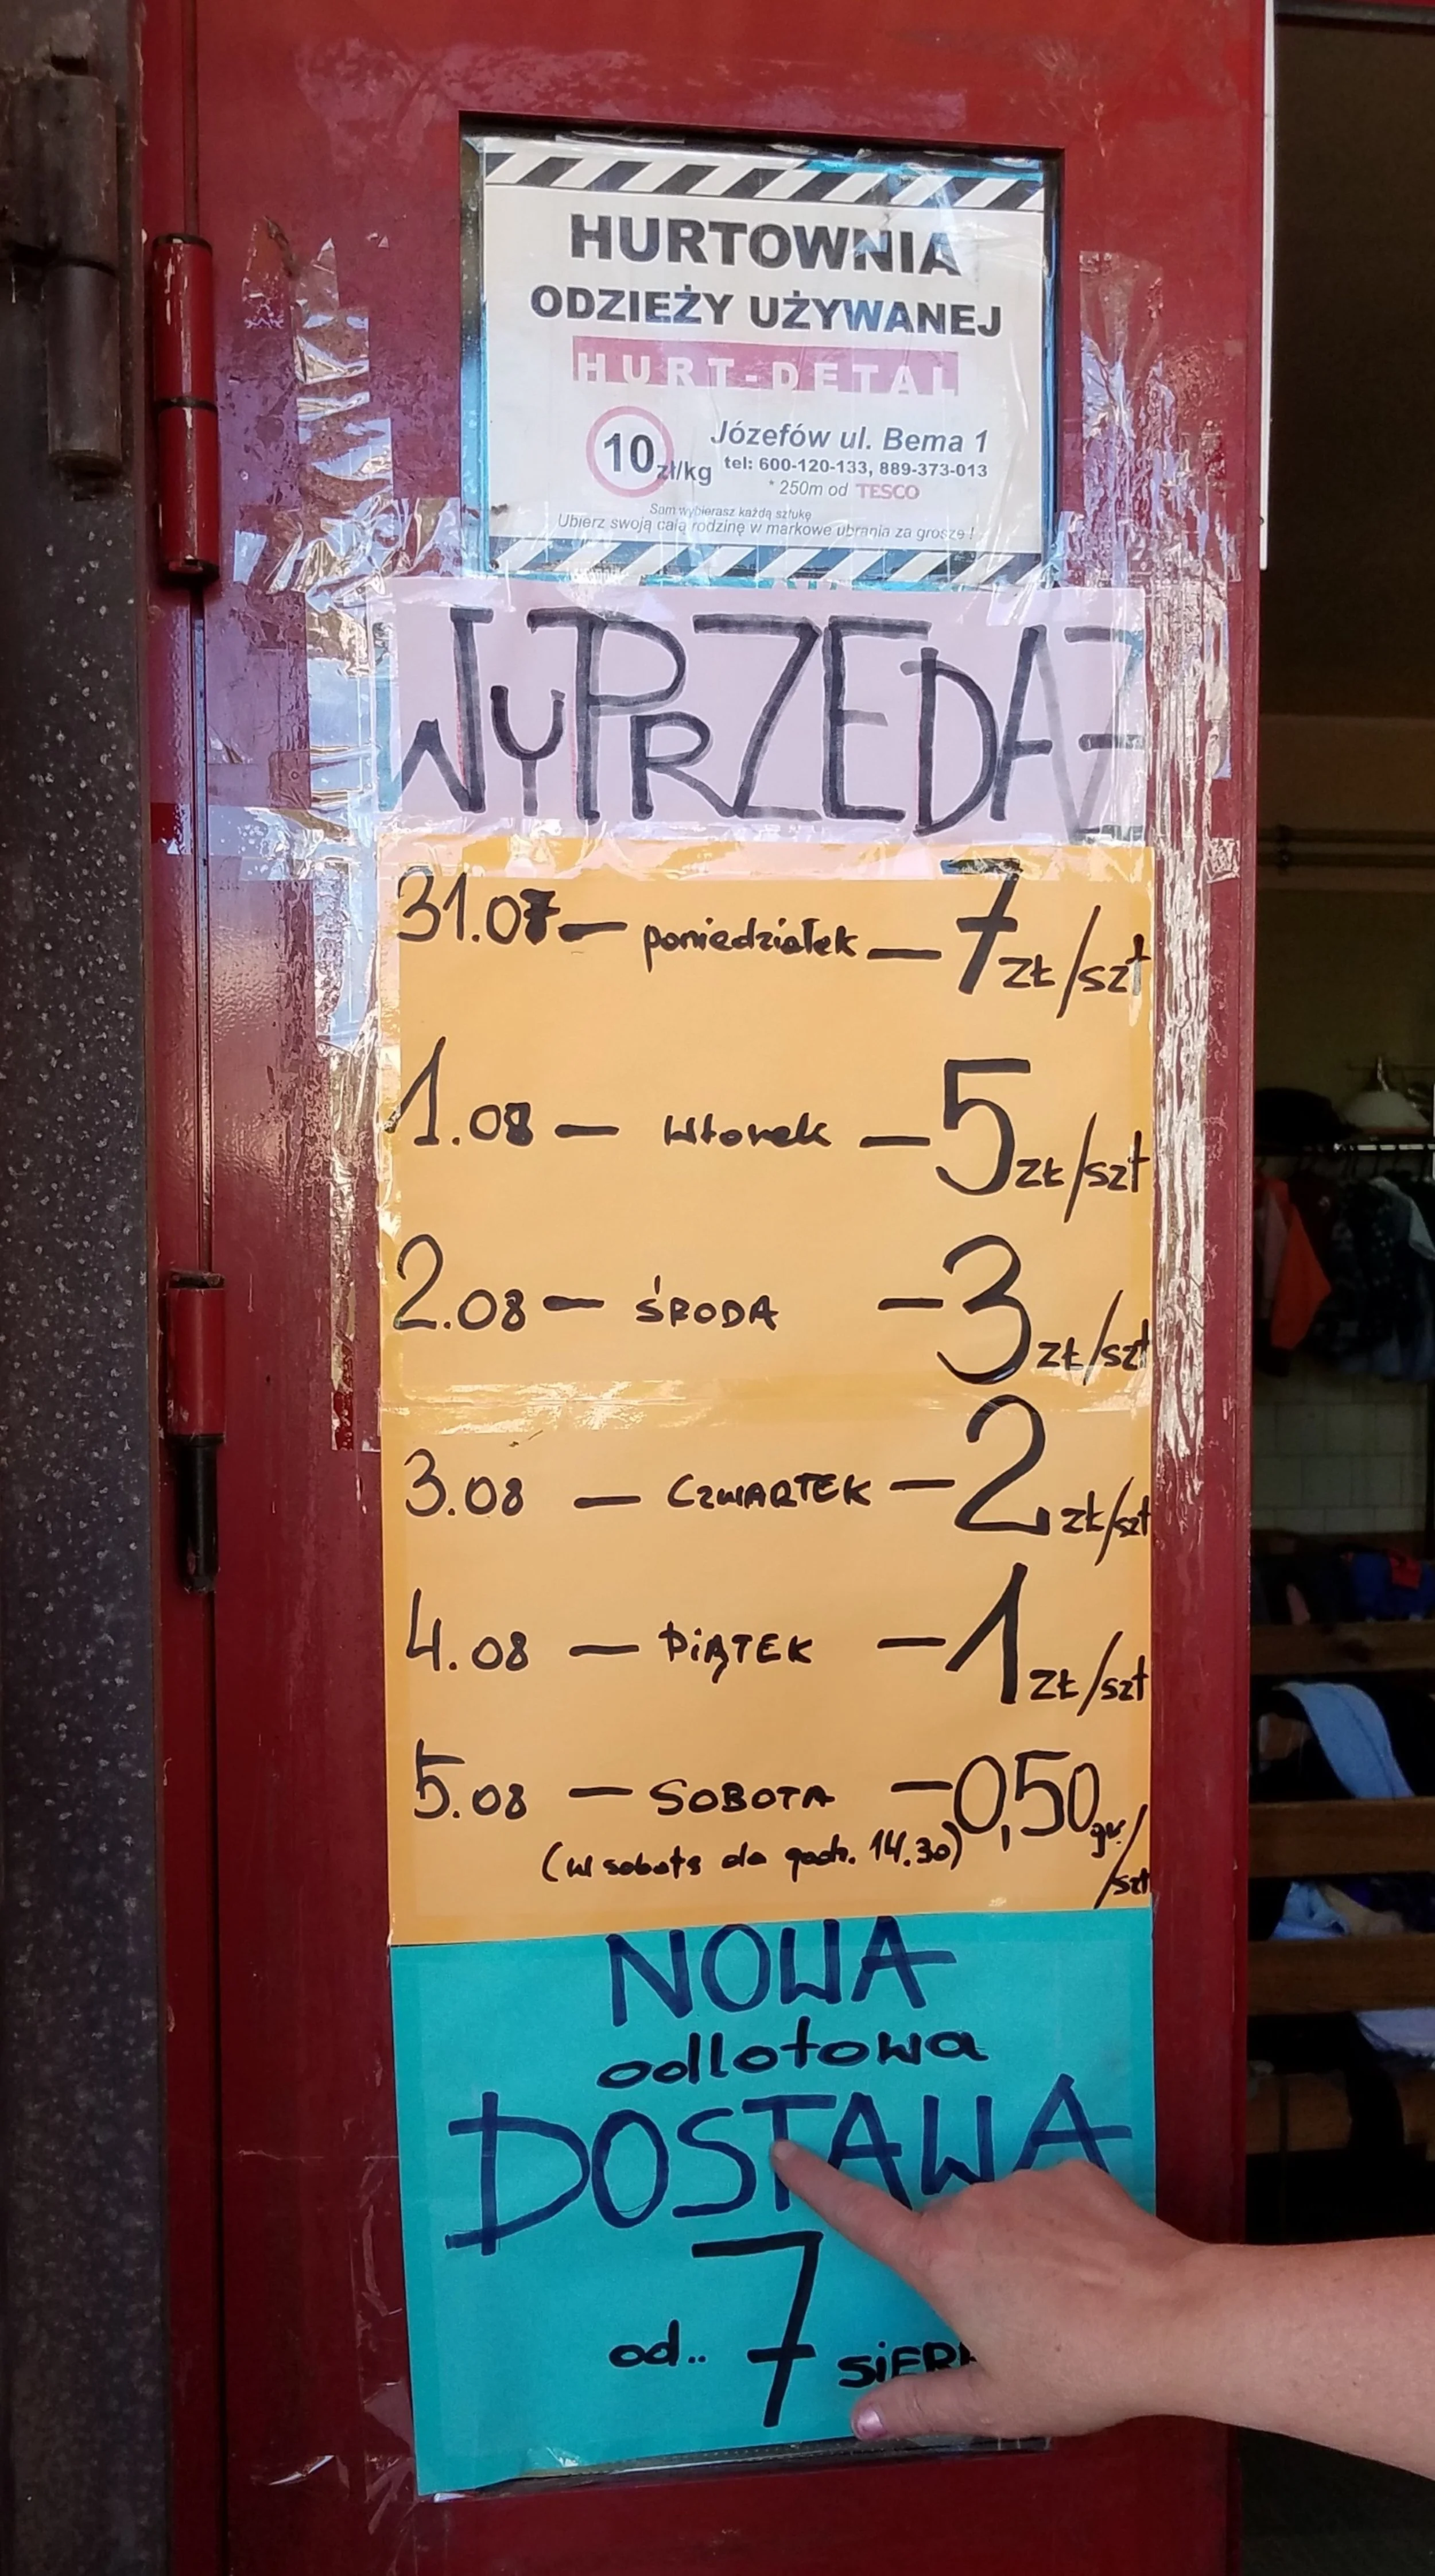 HURTOWNIA
ODZIEŻY UŻYWANEJ
HURT-DETAL
10 zł/kg
Józefów ul. Bema 1
tel: 600-120-133, 889-373-013
* 250m od TESCO
Sam wybierasz każdą sztukę
Ubierz swoją całą rodzinę w markowe ubrania za grosze !
WYPRZEDAŻ
31.07 — poniedziałek — 7 zł/szt
1.08 — wtorek — 5 zł/szt
2.08 — ŚRODA — 3 zł/szt
3.08 — CZWARTEK — 2 zł/szt
4.08 — PIĄTEK — 1 zł/szt
5.08 — SOBOTA — 0,50 gr./szt
(w sobotę do godz. 14.30)
NOWA
odlotowa
DOSTAWA
od.. 7